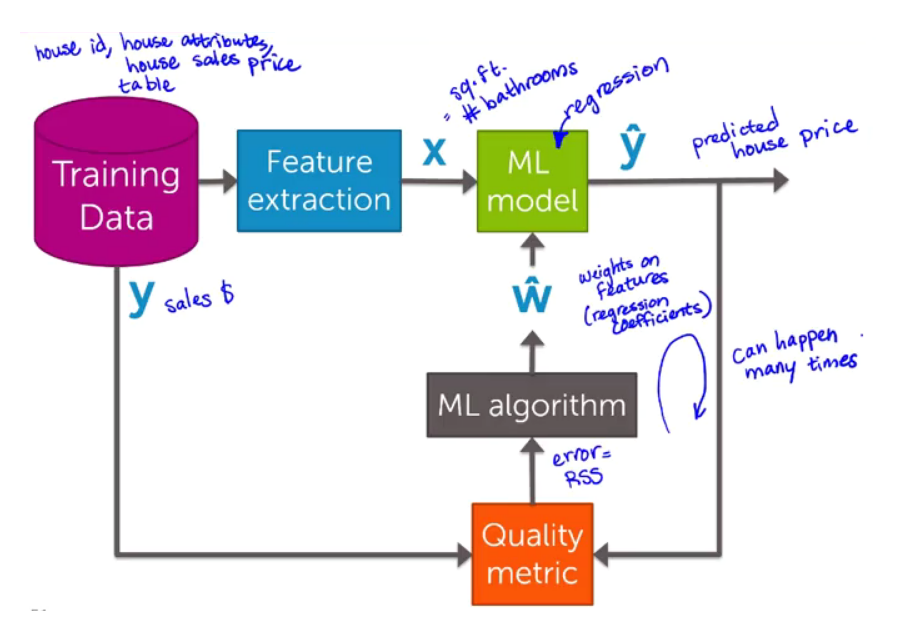 house id, house attributes,
house sales price
table
Training
Data
Feature
extraction
x
= sq.ft.
# bathrooms
regression
ML
model
ŷ
predicted
house price
y sales $
ŵ
weights on
features
(regression
coefficients)
can happen
many times
ML algorithm
error =
RSS
Quality
metric